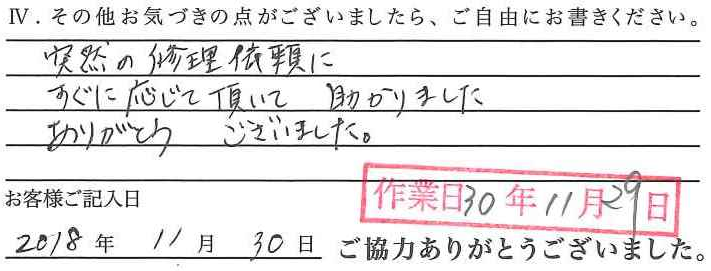 Ⅳ．その他お気づきの点がございましたら、ご自由にお書きください。
突然の修理依頼に
すぐに応じて頂いて 助かりました
ありがとう ございました。
お客様ご記入日
作業日30年11月29日
2018年 11月 30日 ご協力ありがとうございました。